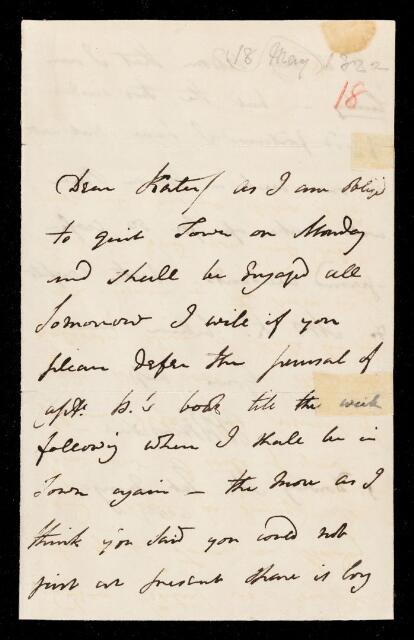 (18 May) 1822
18
Dear Kater/ as I am obliged
to quit Town on Monday
and shall be engaged all
tomorrow I will if you
please defer the perusal of
Captn. B.'s book till the week
following when I shall be in
Town again – the more as I
think you said you could not
just at present share it long